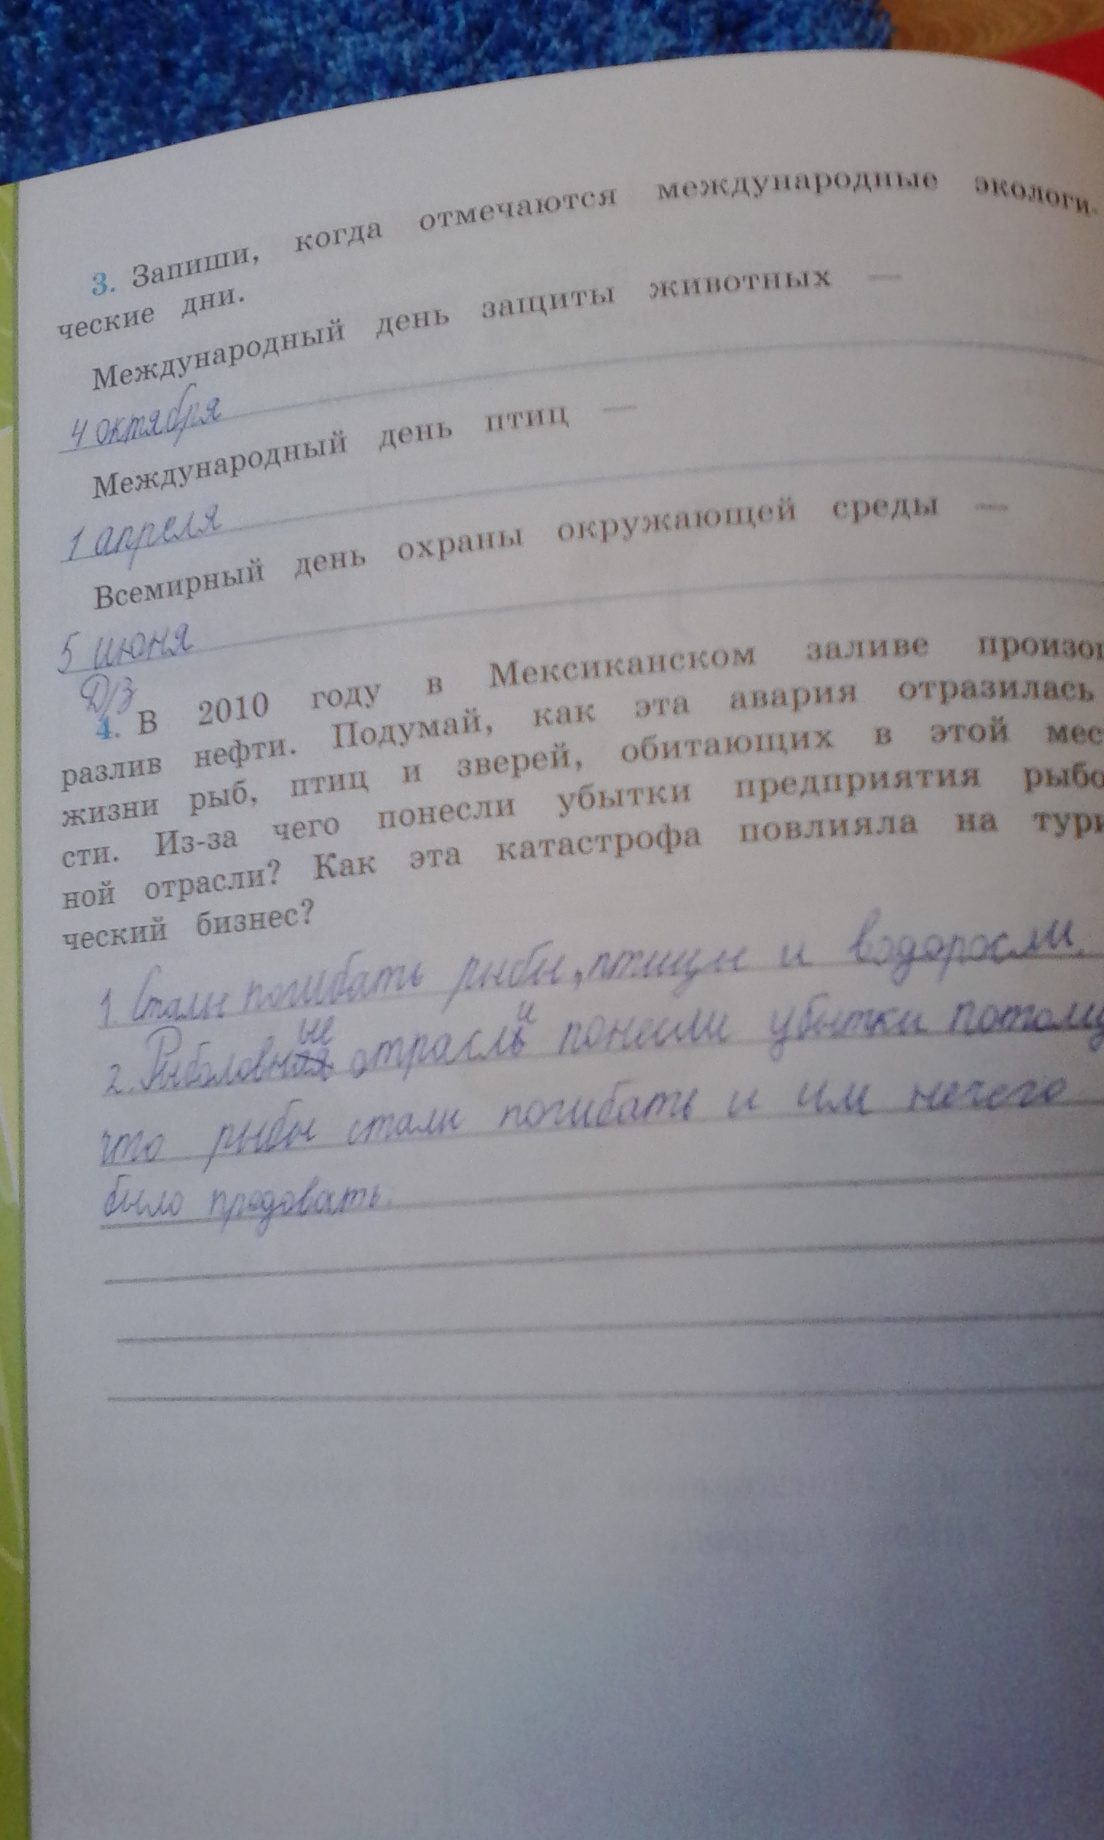 3. Запиши, когда отмечаются международные экологи-
ческие дни.
Международный день защиты животных —
4 октября
Международный день птиц —
1 апреля
Всемирный день охраны окружающей среды —
5 июня
Д/З
4. В 2010 году в Мексиканском заливе произош
разлив нефти. Подумай, как эта авария отразилась
жизни рыб, птиц и зверей, обитающих в этой мес
сти. Из-за чего понесли убытки предприятия рыбо
ной отрасли? Как эта катастрофа повлияла на тури
ческий бизнес?
1. Стали погибать рыбы, птицы и водоросли.
2. Рыболовные отрасли понесли убытки потому
что рыбы стали погибать и им нечего
было продовать.